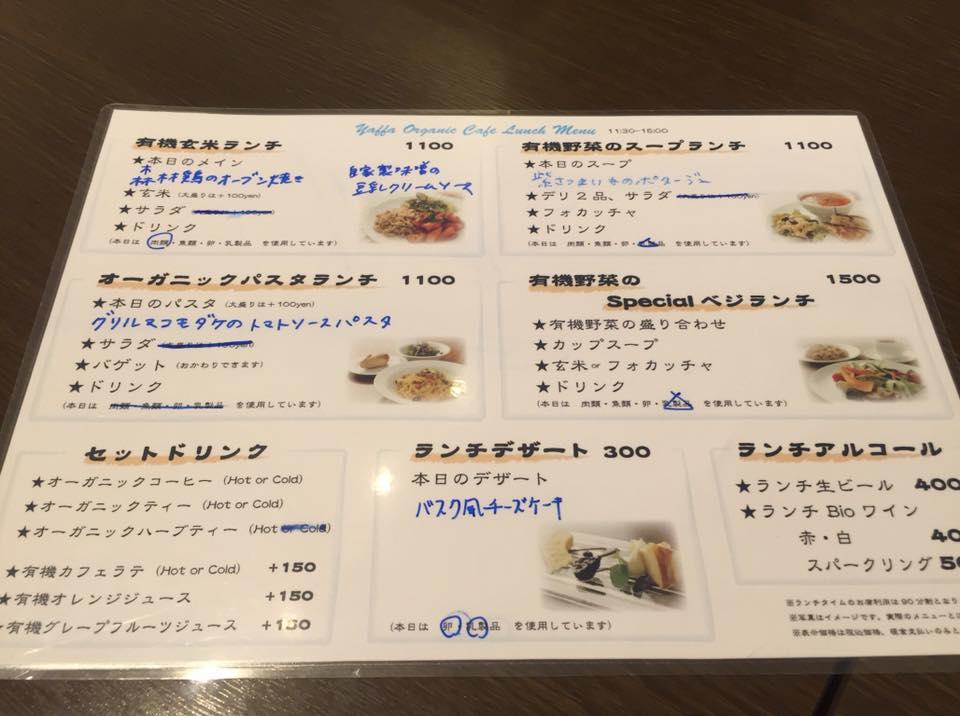 Yaffa Organic Cafe Lunch Menu 11:30-16:00
有機玄米ランチ 1100
★本日のメイン
森林鶏のオーブン焼き
自家製味噌の
豆乳クリームソース
★玄米（大盛りは+100yen）
★サラダ
★ドリンク
（本日は 肉類・魚類・卵・乳製品 を使用しています）
有機野菜のスープランチ 1100
★本日のスープ
紫さつまいものポタージュ
★デリ２品、サラダ
★フォカッチャ
★ドリンク
（本日は 肉類・魚類・卵・乳製品 を使用しています）
オーガニックパスタランチ 1100
★本日のパスタ（大盛りは+100yen）
グリルマコモダケのトマトソースパスタ
★サラダ
★バゲット（おかわりできます）
★ドリンク
（本日は 肉類・魚類・卵・乳製品 を使用しています）
有機野菜の 1500
Special ベジランチ
★有機野菜の盛り合わせ
★カップスープ
★玄米 or フォカッチャ
★ドリンク
（本日は 肉類・魚類・卵・乳製品 を使用しています）
セットドリンク
★オーガニックコーヒー（Hot or Cold）
★オーガニックティー（Hot or Cold）
★オーガニックハーブティー（Hot or Cold）
★有機カフェラテ（Hot or Cold） +150
★有機オレンジジュース +150
★有機グレープフルーツジュース +150
ランチデザート 300
本日のデザート
バスク風チーズケーキ
（本日は 卵・乳製品 を使用しています）
ランチアルコール
★ランチ生ビール 400
★ランチ Bio ワイン
赤・白 40
スパークリング 50
※ランチタイムのお席利用は90分制となり
※写真はイメージです。実際のメニューとは
※表示価格は税込価格、現金支払いのみと